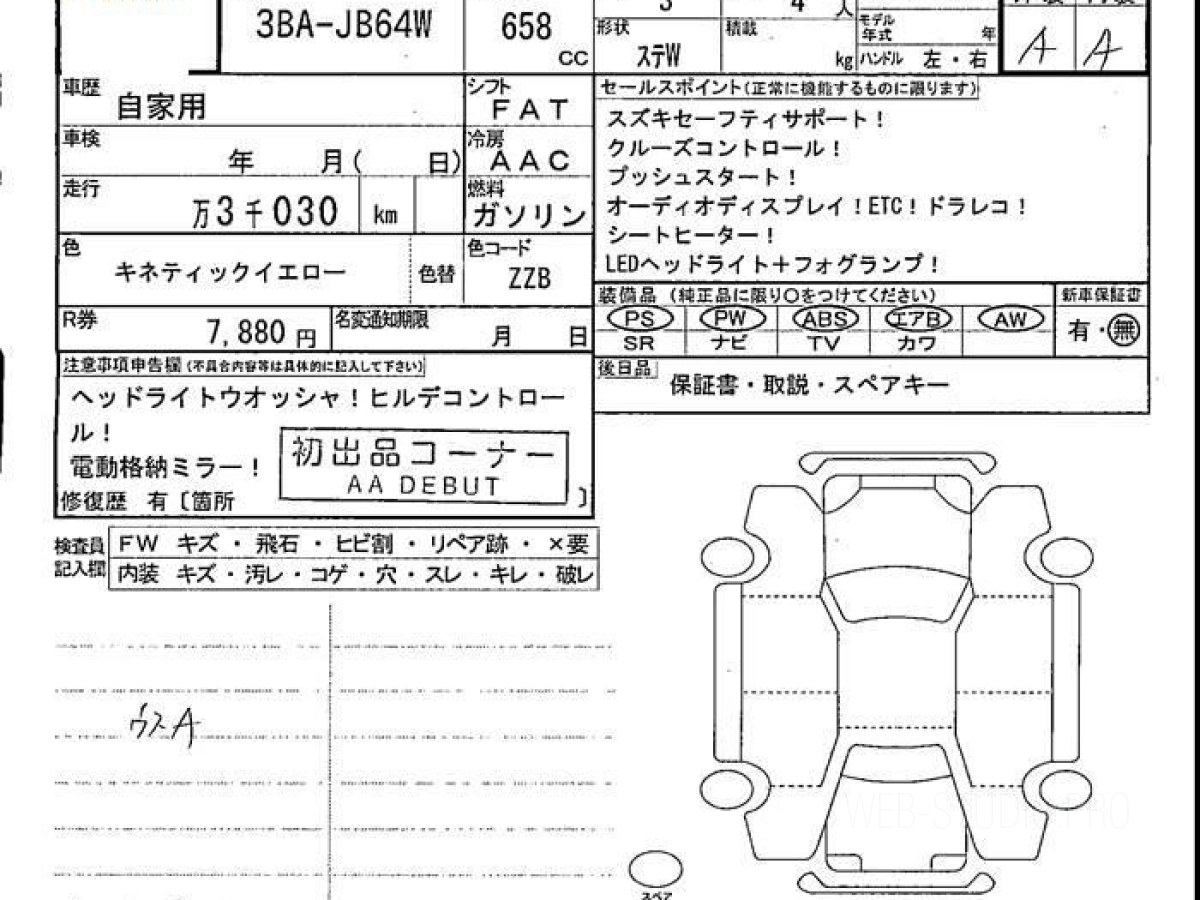 3BA-JB64W
658
CC
3
4
人
形状
ステW
積載
kg
モデル
年式
年
ハンドル 左・右
A A
車歴
自家用
シフト
FAT
車検
年 月( 日)
冷房
AAC
走行
万3千030 km
燃料
ガソリン
色
キネティックイエロー
色替
色コード
ZZB
R券
7,880 円
名変通知期限
月 日
セールスポイント(正常に機能するものに限ります)
スズキセーフティサポート!
クルーズコントロール!
プッシュスタート!
オーディオディスプレイ!ETC!ドラレコ!
シートヒーター!
LEDヘッドライト+フォグランプ!
装備品 (純正品に限り○をつけてください)
新車保証書
PS PW ABS エアB AW
SR ナビ TV カワ
有・無
後日品
保証書・取説・スペアキー
注意事項申告欄(不具合内容等は具体的に記入して下さい)
ヘッドライトウオッシャ!ヒルデコントロー
ル!
電動格納ミラー!
初出品コーナー
AA DEBUT
修復歴 有〔箇所 〕
検査員
記入欄
FW キズ・飛石・ヒビ割・リペア跡・×要
内装 キズ・汚レ・コゲ・穴・スレ・キレ・破レ
ウスA
スペア
WEB-STUDIO.PRO